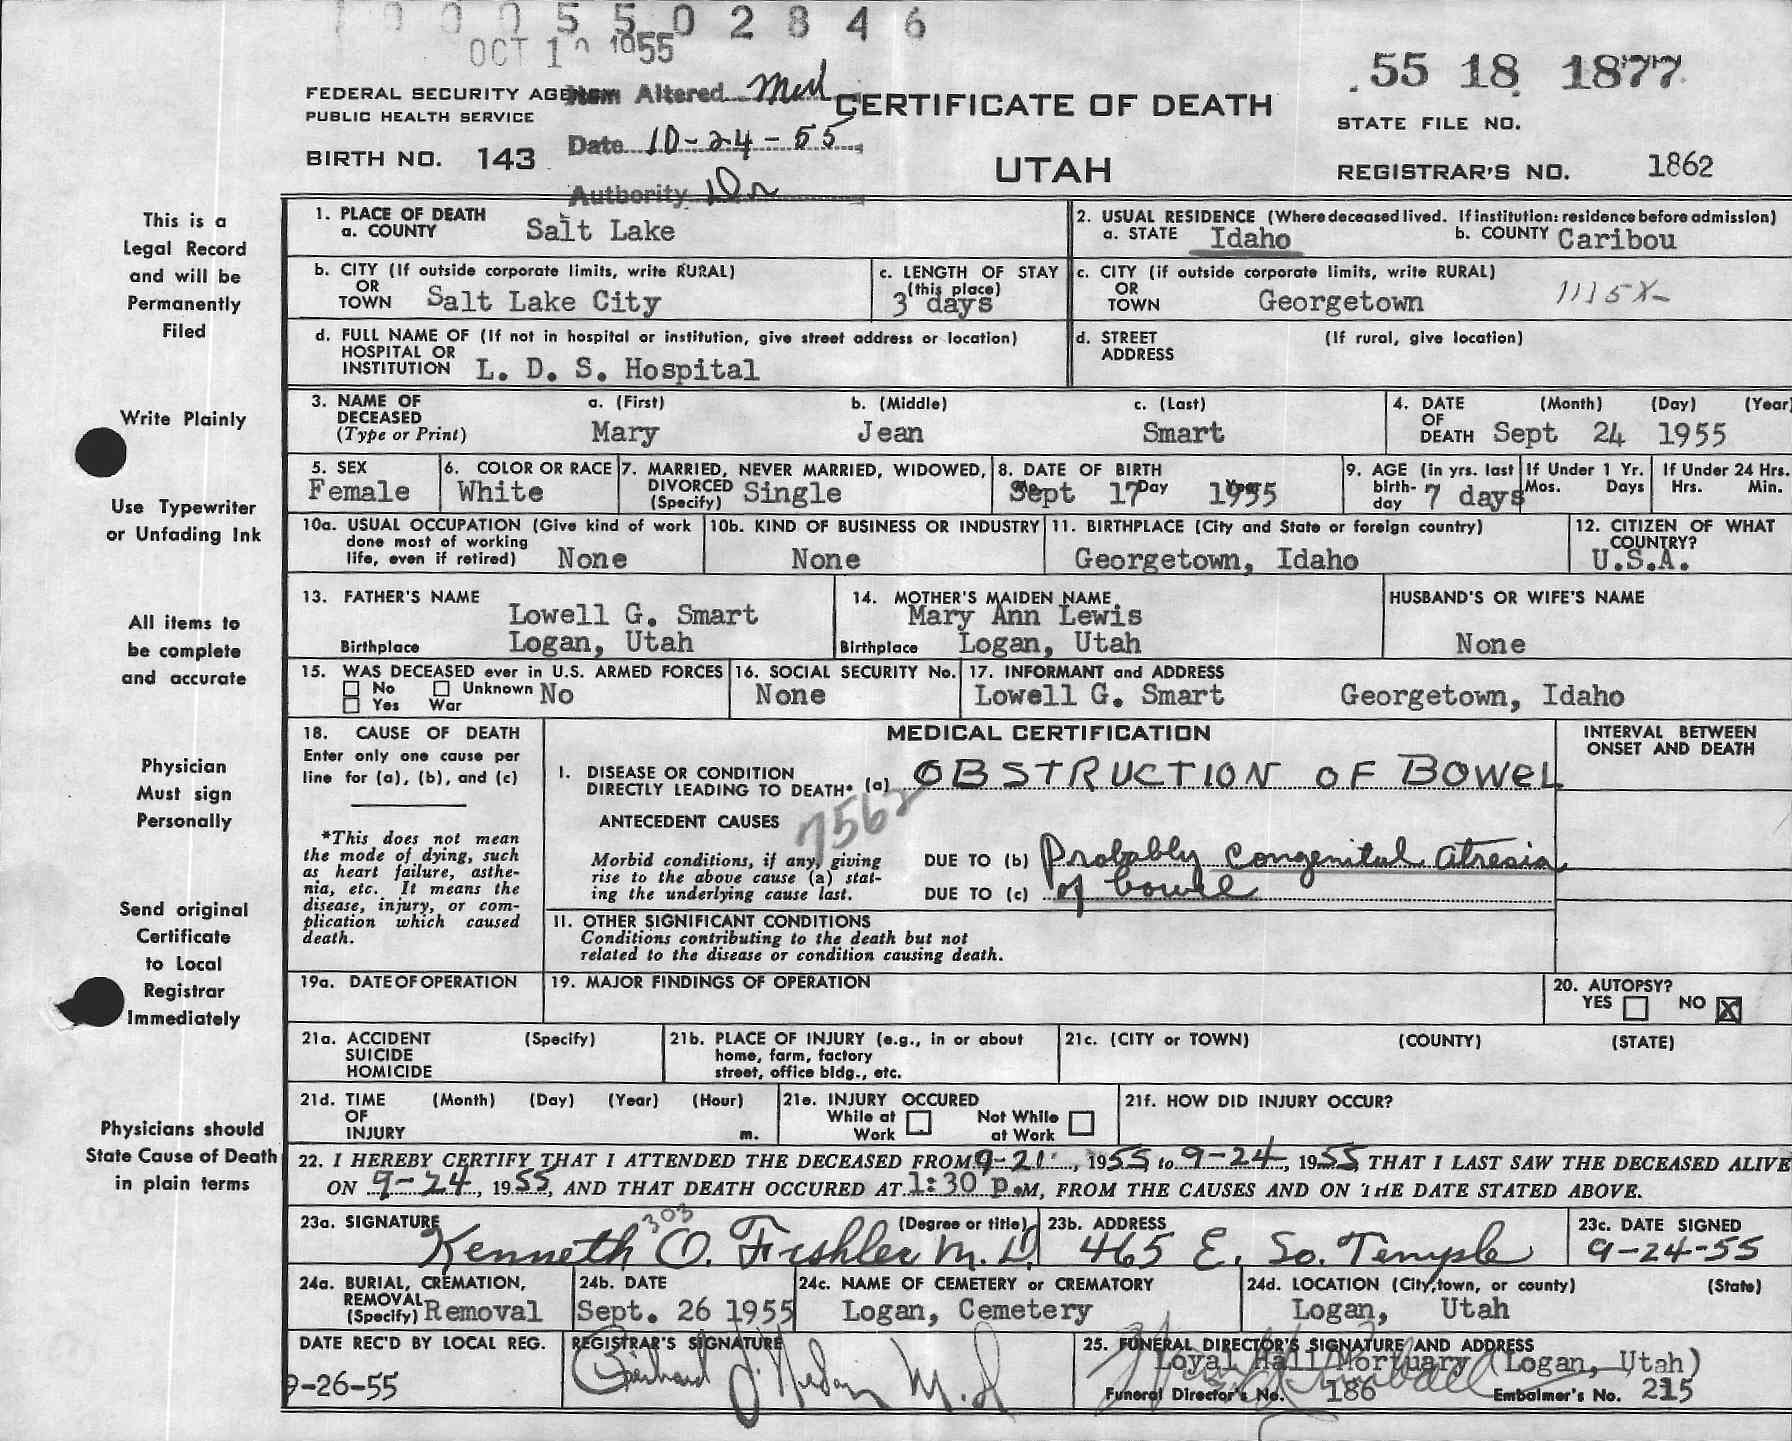 1 0 0 0 5 5 0 2 8 4 6
OCT 1 1955
55 18 1877
FEDERAL SECURITY AGENCY
PUBLIC HEALTH SERVICE
BIRTH NO. 143
Item Altered Med
Date 10-24-55
Authority Dr
CERTIFICATE OF DEATH
UTAH
STATE FILE NO.
REGISTRAR'S NO. 1862
This is a
Legal Record
and will be
Permanently
Filed
Write Plainly
Use Typewriter
or Unfading Ink
All items to
be complete
and accurate
Physician
Must sign
Personally
Send original
Certificate
to Local
Registrar
Immediately
Physicians should
State Cause of Death
in plain terms
1. PLACE OF DEATH
a. COUNTY Salt Lake
2. USUAL RESIDENCE (Where deceased lived. If institution: residence before admission)
a. STATE Idaho b. COUNTY Caribou
b. CITY (If outside corporate limits, write RURAL)
OR
TOWN Salt Lake City
c. LENGTH OF STAY
(this place)
3 days
c. CITY (if outside corporate limits, write RURAL)
OR
TOWN Georgetown
1115X-
d. FULL NAME OF (If not in hospital or institution, give street address or location)
HOSPITAL OR
INSTITUTION L. D. S. Hospital
d. STREET (If rural, give location)
ADDRESS
3. NAME OF DECEASED
(Type or Print)
a. (First) b. (Middle) c. (Last)
Mary Jean Smart
4. DATE (Month) (Day) (Year)
OF
DEATH Sept 24 1955
5. SEX
Female
6. COLOR OR RACE
White
7. MARRIED, NEVER MARRIED, WIDOWED,
DIVORCED
(Specify) Single
8. DATE OF BIRTH
Mo. Day Year
Sept 17 1955
9. AGE (in yrs. last
birth-
day 7 days
If Under 1 Yr.
Mos. Days
If Under 24 Hrs.
Hrs. Min.
10a. USUAL OCCUPATION (Give kind of work
done most of working
life, even if retired) None
10b. KIND OF BUSINESS OR INDUSTRY
None
11. BIRTHPLACE (City and State or foreign country)
Georgetown, Idaho
12. CITIZEN OF WHAT
COUNTRY?
U.S.A.
13. FATHER'S NAME
Lowell G. Smart
Birthplace Logan, Utah
14. MOTHER'S MAIDEN NAME
Mary Ann Lewis
Birthplace Logan, Utah
HUSBAND'S OR WIFE'S NAME
None
15. WAS DECEASED ever in U.S. ARMED FORCES
No Unknown No
Yes War
16. SOCIAL SECURITY No.
None
17. INFORMANT and ADDRESS
Lowell G. Smart Georgetown, Idaho
18. CAUSE OF DEATH
Enter only one cause per
line for (a), (b), and (c)
*This does not mean
the mode of dying, such
as heart failure, asthe-
nia, etc. It means the
disease, injury, or com-
plication which caused
death.
MEDICAL CERTIFICATION
INTERVAL BETWEEN
ONSET AND DEATH
I. DISEASE OR CONDITION
DIRECTLY LEADING TO DEATH* (a) OBSTRUCTION OF BOWEL
7562
ANTECEDENT CAUSES
Morbid conditions, if any, giving
rise to the above cause (a) stat-
ing the underlying cause last.
DUE TO (b) Probably congenital atresia
DUE TO (c) of bowel
II. OTHER SIGNIFICANT CONDITIONS
Conditions contributing to the death but not
related to the disease or condition causing death.
19a. DATE OF OPERATION
19. MAJOR FINDINGS OF OPERATION
20. AUTOPSY?
YES NO X
21a. ACCIDENT (Specify)
SUICIDE
HOMICIDE
21b. PLACE OF INJURY (e.g., in or about
home, farm, factory
street, office bldg., etc.
21c. (CITY or TOWN) (COUNTY) (STATE)
21d. TIME (Month) (Day) (Year) (Hour)
OF
INJURY m.
21e. INJURY OCCURED
While at Work
Not While at Work
21f. HOW DID INJURY OCCUR?
22. I HEREBY CERTIFY THAT I ATTENDED THE DECEASED FROM 9-21, 1955 to 9-24, 1955, THAT I LAST SAW THE DECEASED ALIVE
ON 9-24, 1955, AND THAT DEATH OCCURED AT 1:30 p.M, FROM THE CAUSES AND ON THE DATE STATED ABOVE.
23a. SIGNATURE (Degree or title)
303
Kenneth O. Fishler M.D.
23b. ADDRESS
465 E. So. Temple
23c. DATE SIGNED
9-24-55
24a. BURIAL, CREMATION,
REMOVAL
(Specify) Removal
24b. DATE
Sept. 26 1955
24c. NAME OF CEMETERY or CREMATORY
Logan, Cemetery
24d. LOCATION (City, town, or county) (State)
Logan, Utah
DATE REC'D BY LOCAL REG.
9-26-55
REGISTRAR'S SIGNATURE
M.D.
25. FUNERAL DIRECTOR'S SIGNATURE AND ADDRESS
Loyal Hall Mortuary (Logan, Utah)
Funeral Director's No. 186 Embalmer's No. 215